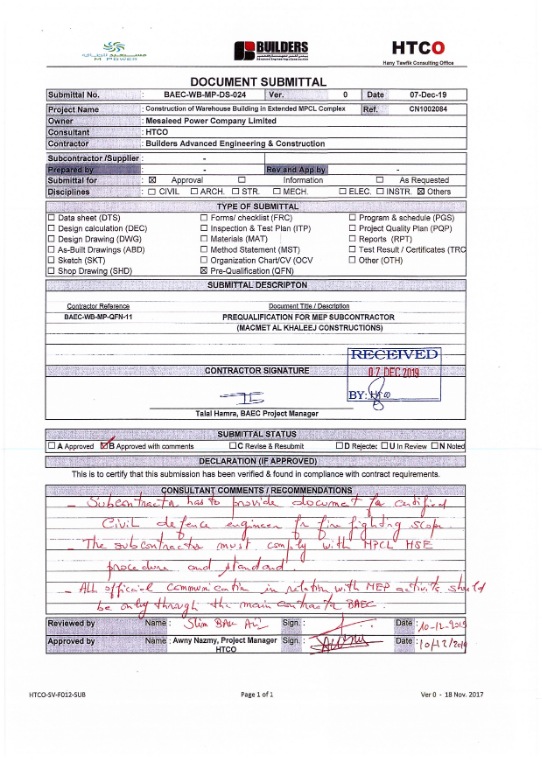 M POWER
BUILDERS
HTCO
Hany Tawfik Consulting Office
DOCUMENT SUBMITTAL
Submittal No. : BAEC-WB-MP-DS-024 Ver. 0 Date 07-Dec-19
Project Name : Construction of Warehouse Building in Extended MPCL Complex Ref. CN1002084
Owner : Mesaieed Power Company Limited
Consultant : HTCO
Contractor : Builders Advanced Engineering & Construction
Subcontractor /Supplier : -
Prepared by : - Rev and App.by -
Submittal for : ☒ Approval ☐ Information ☐ As Requested
Disciplines : ☐ CIVIL ☐ ARCH. ☐ STR. ☐ MECH. ☐ ELEC. ☐ INSTR. ☒ Others
TYPE OF SUBMITTAL
☐ Data sheet (DTS) ☐ Forms/ checklist (FRC) ☐ Program & schedule (PGS)
☐ Design calculation (DEC) ☐ Inspection & Test Plan (ITP) ☐ Project Quality Plan (PQP)
☐ Design Drawing (DWG) ☐ Materials (MAT) ☐ Reports (RPT)
☐ As-Built Drawings (ABD) ☐ Method Statement (MST) ☐ Test Result / Certificates (TRC
☐ Sketch (SKT) ☐ Organization Chart/CV (OCV ☐ Other (OTH)
☐ Shop Drawing (SHD) ☒ Pre-Qualification (QFN)
SUBMITTAL DESCRIPTON
Contractor Reference Document Title / Description
BAEC-WB-MP-QFN-11 PREQUALIFICATION FOR MEP SUBCONTRACTOR
(MACMET AL KHALEEJ CONSTRUCTIONS)
RECEIVED
07 DEC 2019
BY:
CONTRACTOR SIGNATURE
Talal Hamra, BAEC Project Manager
SUBMITTAL STATUS
☐ A Approved ☑ B Approved with comments ☐ C Revise & Resubmit ☐ D Rejected ☐ U In Review ☐ N Noted
DECLARATION (IF APPROVED)
This is to certify that this submission has been verified & found in compliance with contract requirements.
CONSULTANT COMMENTS / RECOMMENDATIONS
- Subcontractor has to provide document for certified
Civil defence engineer for fire fighting scope.
- The subcontractor must comply with MPCL HSE
procedure and standard.
- All official communication in relation with MEP activits should
be only through the main contractor BAEC.
Reviewed by Name : Slim Sign. : Date : 10-12-2019
Approved by Name : Awny Nazmy, Project Manager Sign. : Date : 10/12/2019
HTCO
HTCO-SV-F012-SUB Page 1 of 1 Ver 0 - 18 Nov. 2017